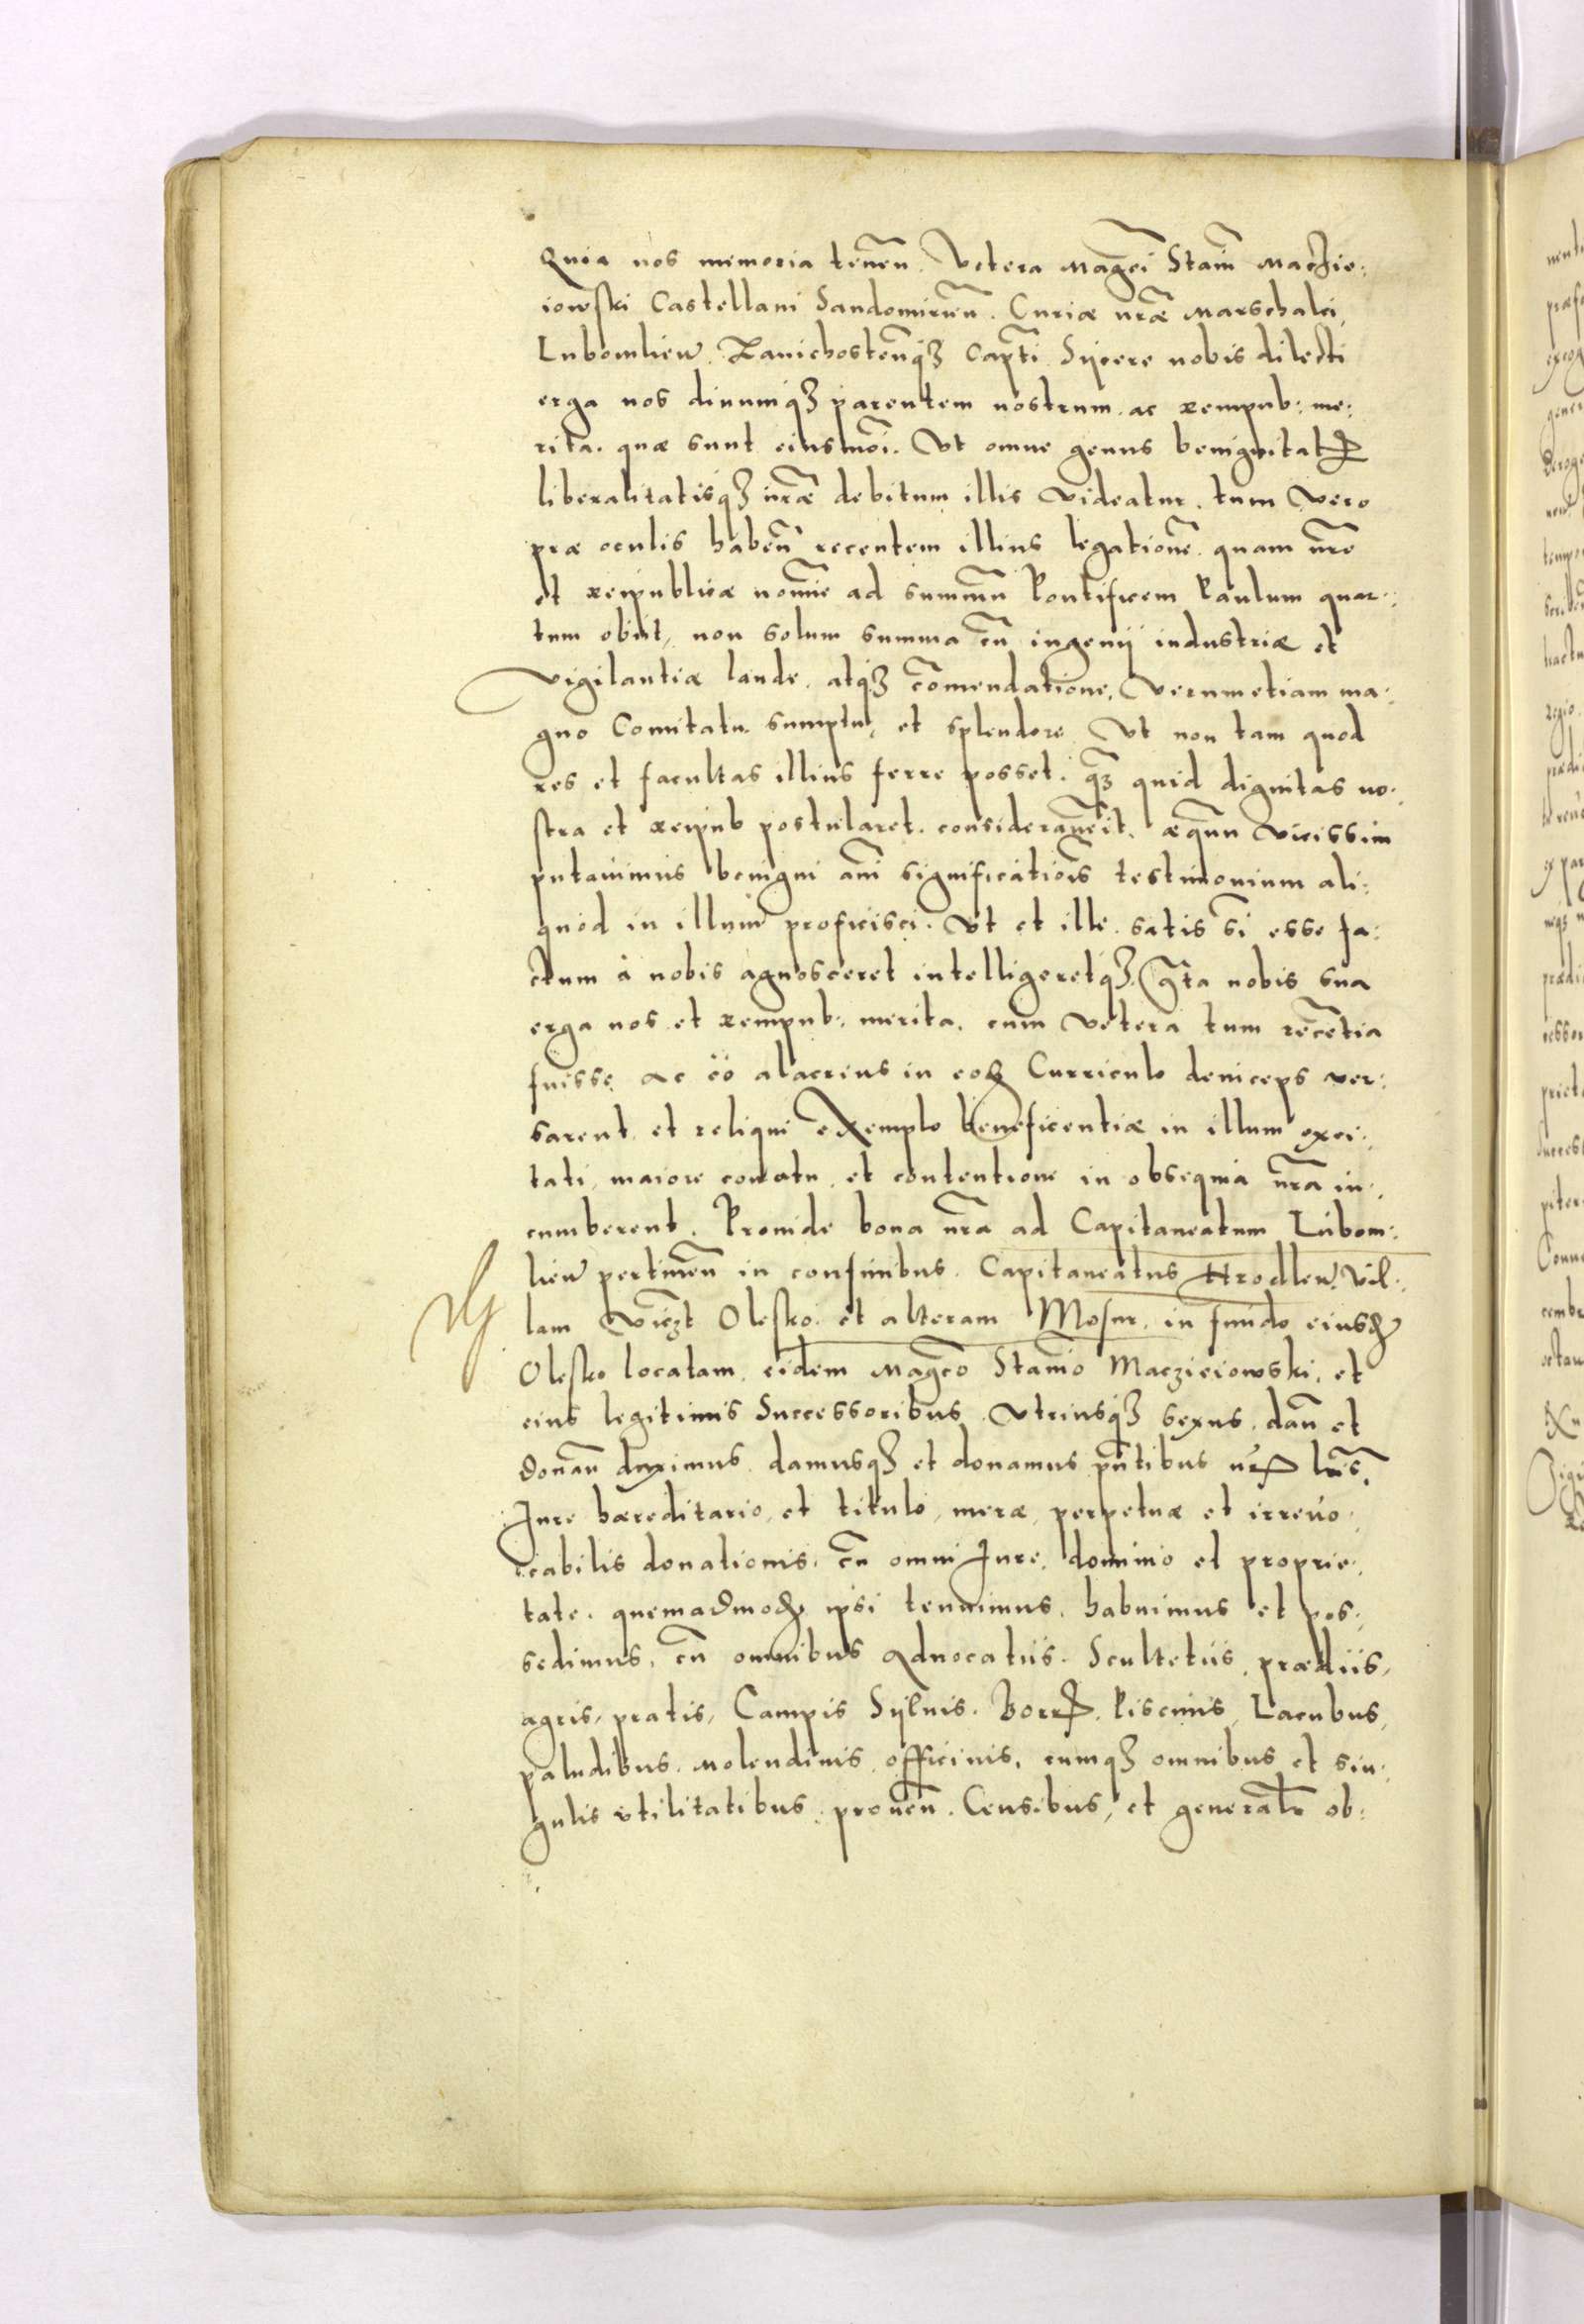 Quia nos memoria tenen̄. Vetera Magc̄i Stam̄ Maczie:
iowski Castellani Sandomirien̄. Curiæ nrǣ Marschalci,
Lubomlien̄ Zanichosten̄q3 Capt̄i Syncere nobis dilecti
erga nos diuumq3 parentem nostrum. ac rempub: me:
rita. quæ sunt eiusmōi. Vt omne genus benignitatꝭ
liberalitatisq3 nrǣ debitum illis videatur. tum vero
præ oculis haben̄ recentem illius legationē. quam nrō
et reipublicæ nomīe ad summū Pontificem Paulum quar:
tum obiit, non solum summa cū ingenij industriæ et
vigilantiæ laude. atq3 cōmendatione, verumetiam ma:
gno Comitatu. sumptu, et splendore. Vt non tam quod
res et facultas illius ferre posset. q̄3 quid dignitas no:
stra et reipub postularet. considerauerit. æquū vicissim
putauimus benigni anī significatiōis testimonium ali:
quod in illum proficisci. Vt et ille. satis s̄i esse fa:
ctum à nobis agnosceret intelligeretq3. Grāta nobis sua
erga nos et rempub: merita. cum vetera tum recētia
fuisse ac eò alacrius in eod Curriculo deniceps ver:
sarent et reliqui exemplo beneficentiæ in illum exci:
tati, maiore conatu. et contentione in obsequia nrā in:
cumberent. Prouide bona nrā ad Capitaneatum Lubom:
lien̄ pertinen̄ in confinibus. Capitaneatus Hrodlen̄. Vil:
lam viczt Olesko. et alteram Mosur. in fundo eiusd
Olesko locatam. eidem Magc̄o Stan̄io Maczieiowski, et
eius legitimis Successoribus. vtriusq3 sexus. dan̄ et
donan̄ duximus. damusq3 et donamus pn̄tibus nrꝭ lrīs.
Jure hæreditario, et titulo, meræ, perpetuæ et irreuo:
cabilis donationis. cū omni Jure. dominio et proprie:
tate. quemadmod ipsi tenuimus. habuimus et pos:
sedimus, cū omnibus Aduocatiis. Scultetiis, prædiis,
agris, pratis, Campis Syluis. Borrꝭ. Piscinis, Lacubus,
paludibus. Molendinis officinis, cumq3 omnibus et sin:
gulis vtilitatibus. prouen̄. Censibus, et generalr̄ ob: